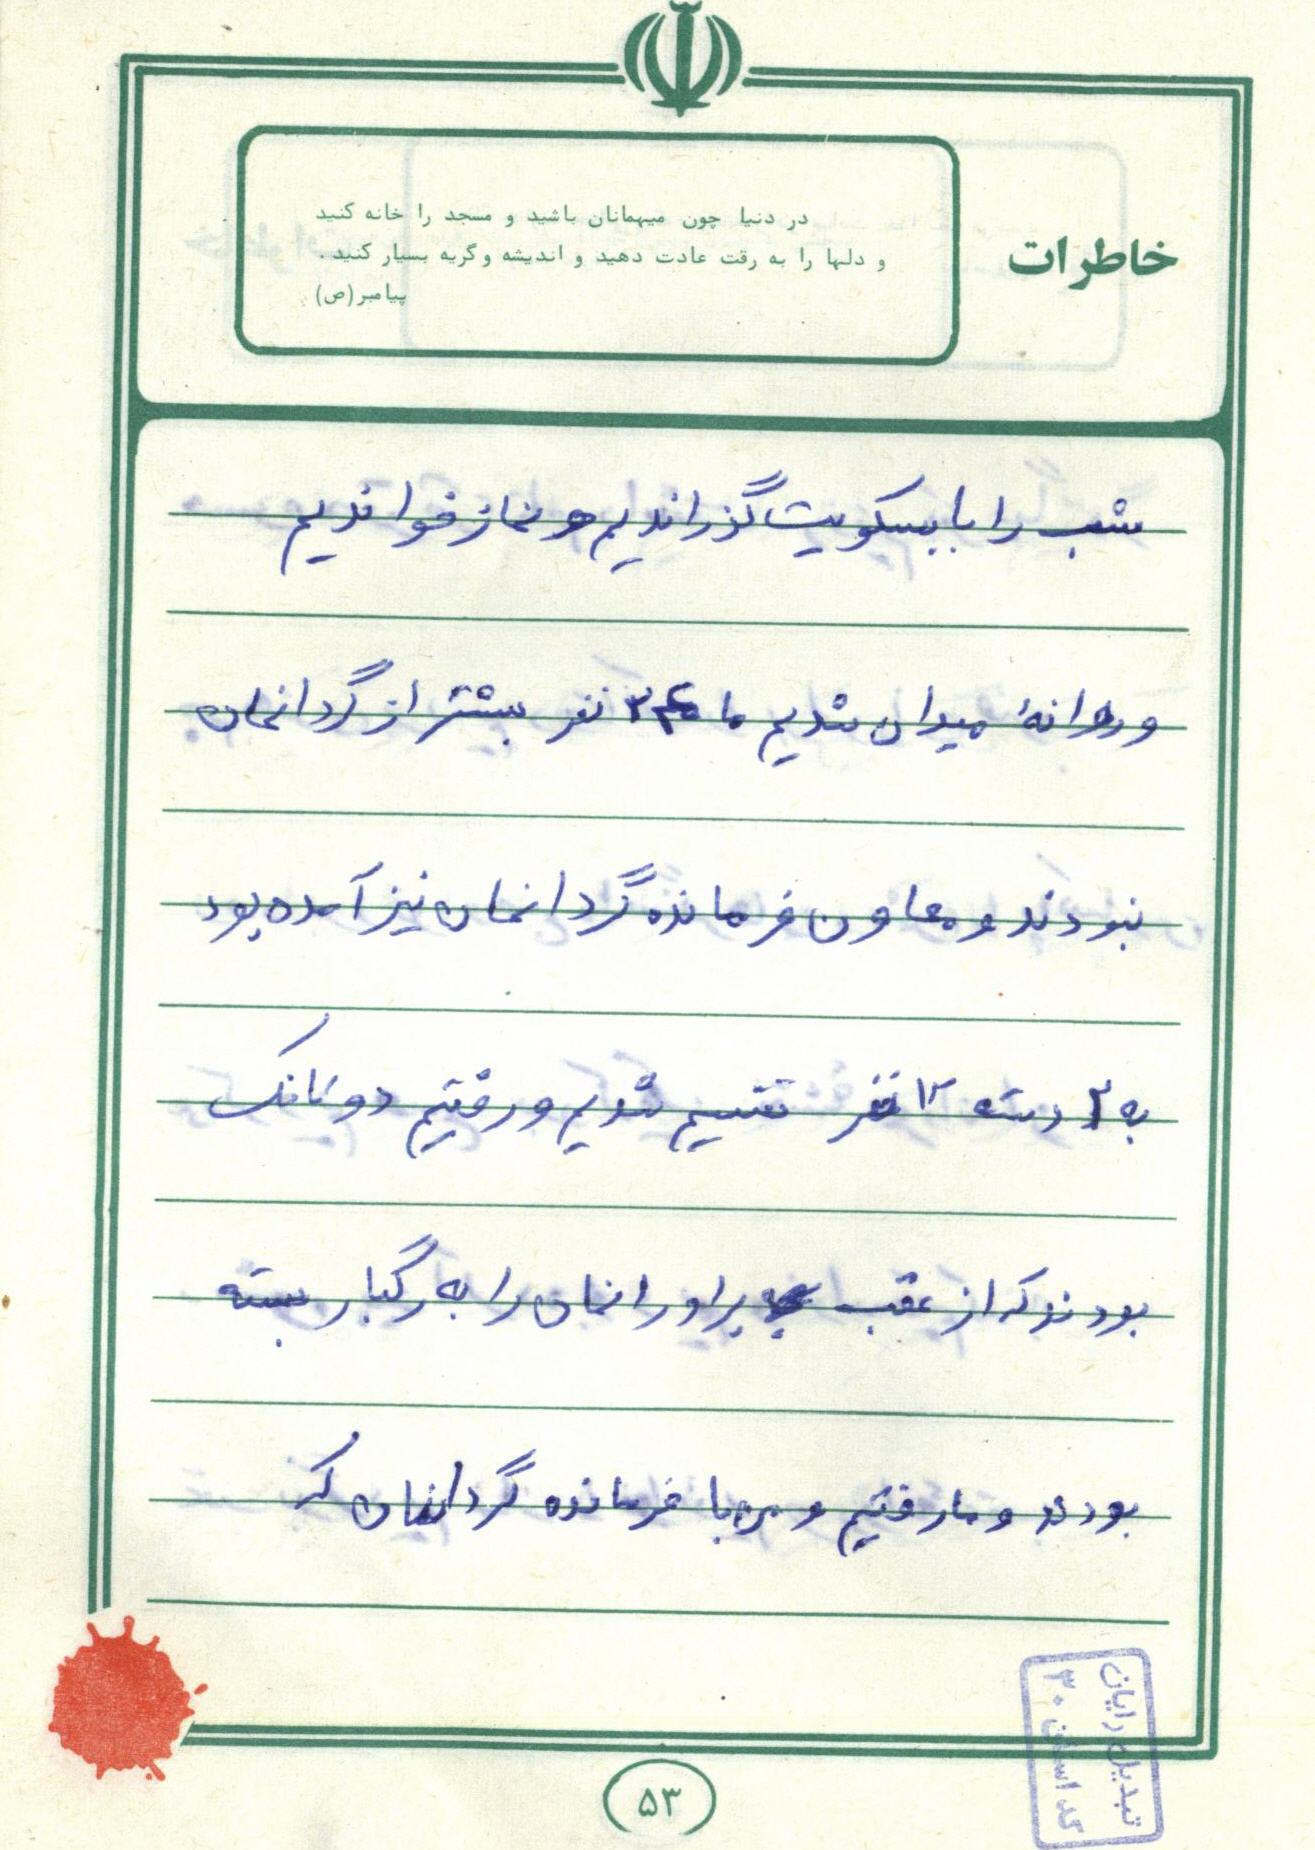 خاطرات
در دنیا چون میهمانان باشید و مسجد را خانه کنید
و دلها را به رقت عادت دهید و اندیشه و گریه بسیار کنید.
پیامبر(ص)
شب را با بیسکویت گذراندیم و نماز خواندیم
و روانهٔ میدان شدیم ما ۲۴ نفر بیشتر از گردانمان
نبودند و معاون فرمانده گردانمان نیز آمده بود
به ۲ دسته ۱۲ نفر تقسیم شدیم و رفتیم دو تانک
بودند که از عقب برادرانمان را به رگبار بسته
بودند و ما رفتیم و من با فرمانده گردانمان که
تبدیل رایان
کد استان ۳۰
۵۳